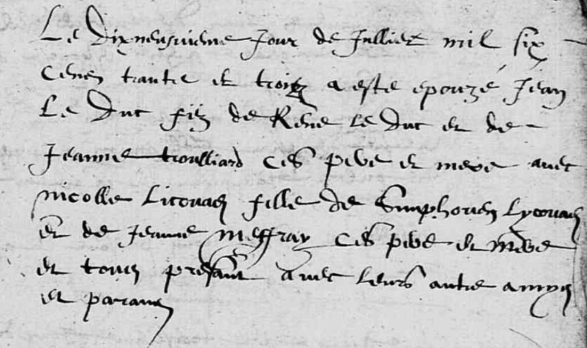 Le Dixneufvieme Jour de Juillet mil six
cens trante et troiz a este epouzé Jean
Le Duc filz de René le Duc et de
Jeanne troulliard ces pere et mere avec
nicolle Licouaq fille de Simphorien Lycouaq
et de Jeanne Meffray ces pere et mere
et tous presant avec leurs autre amys
et parans